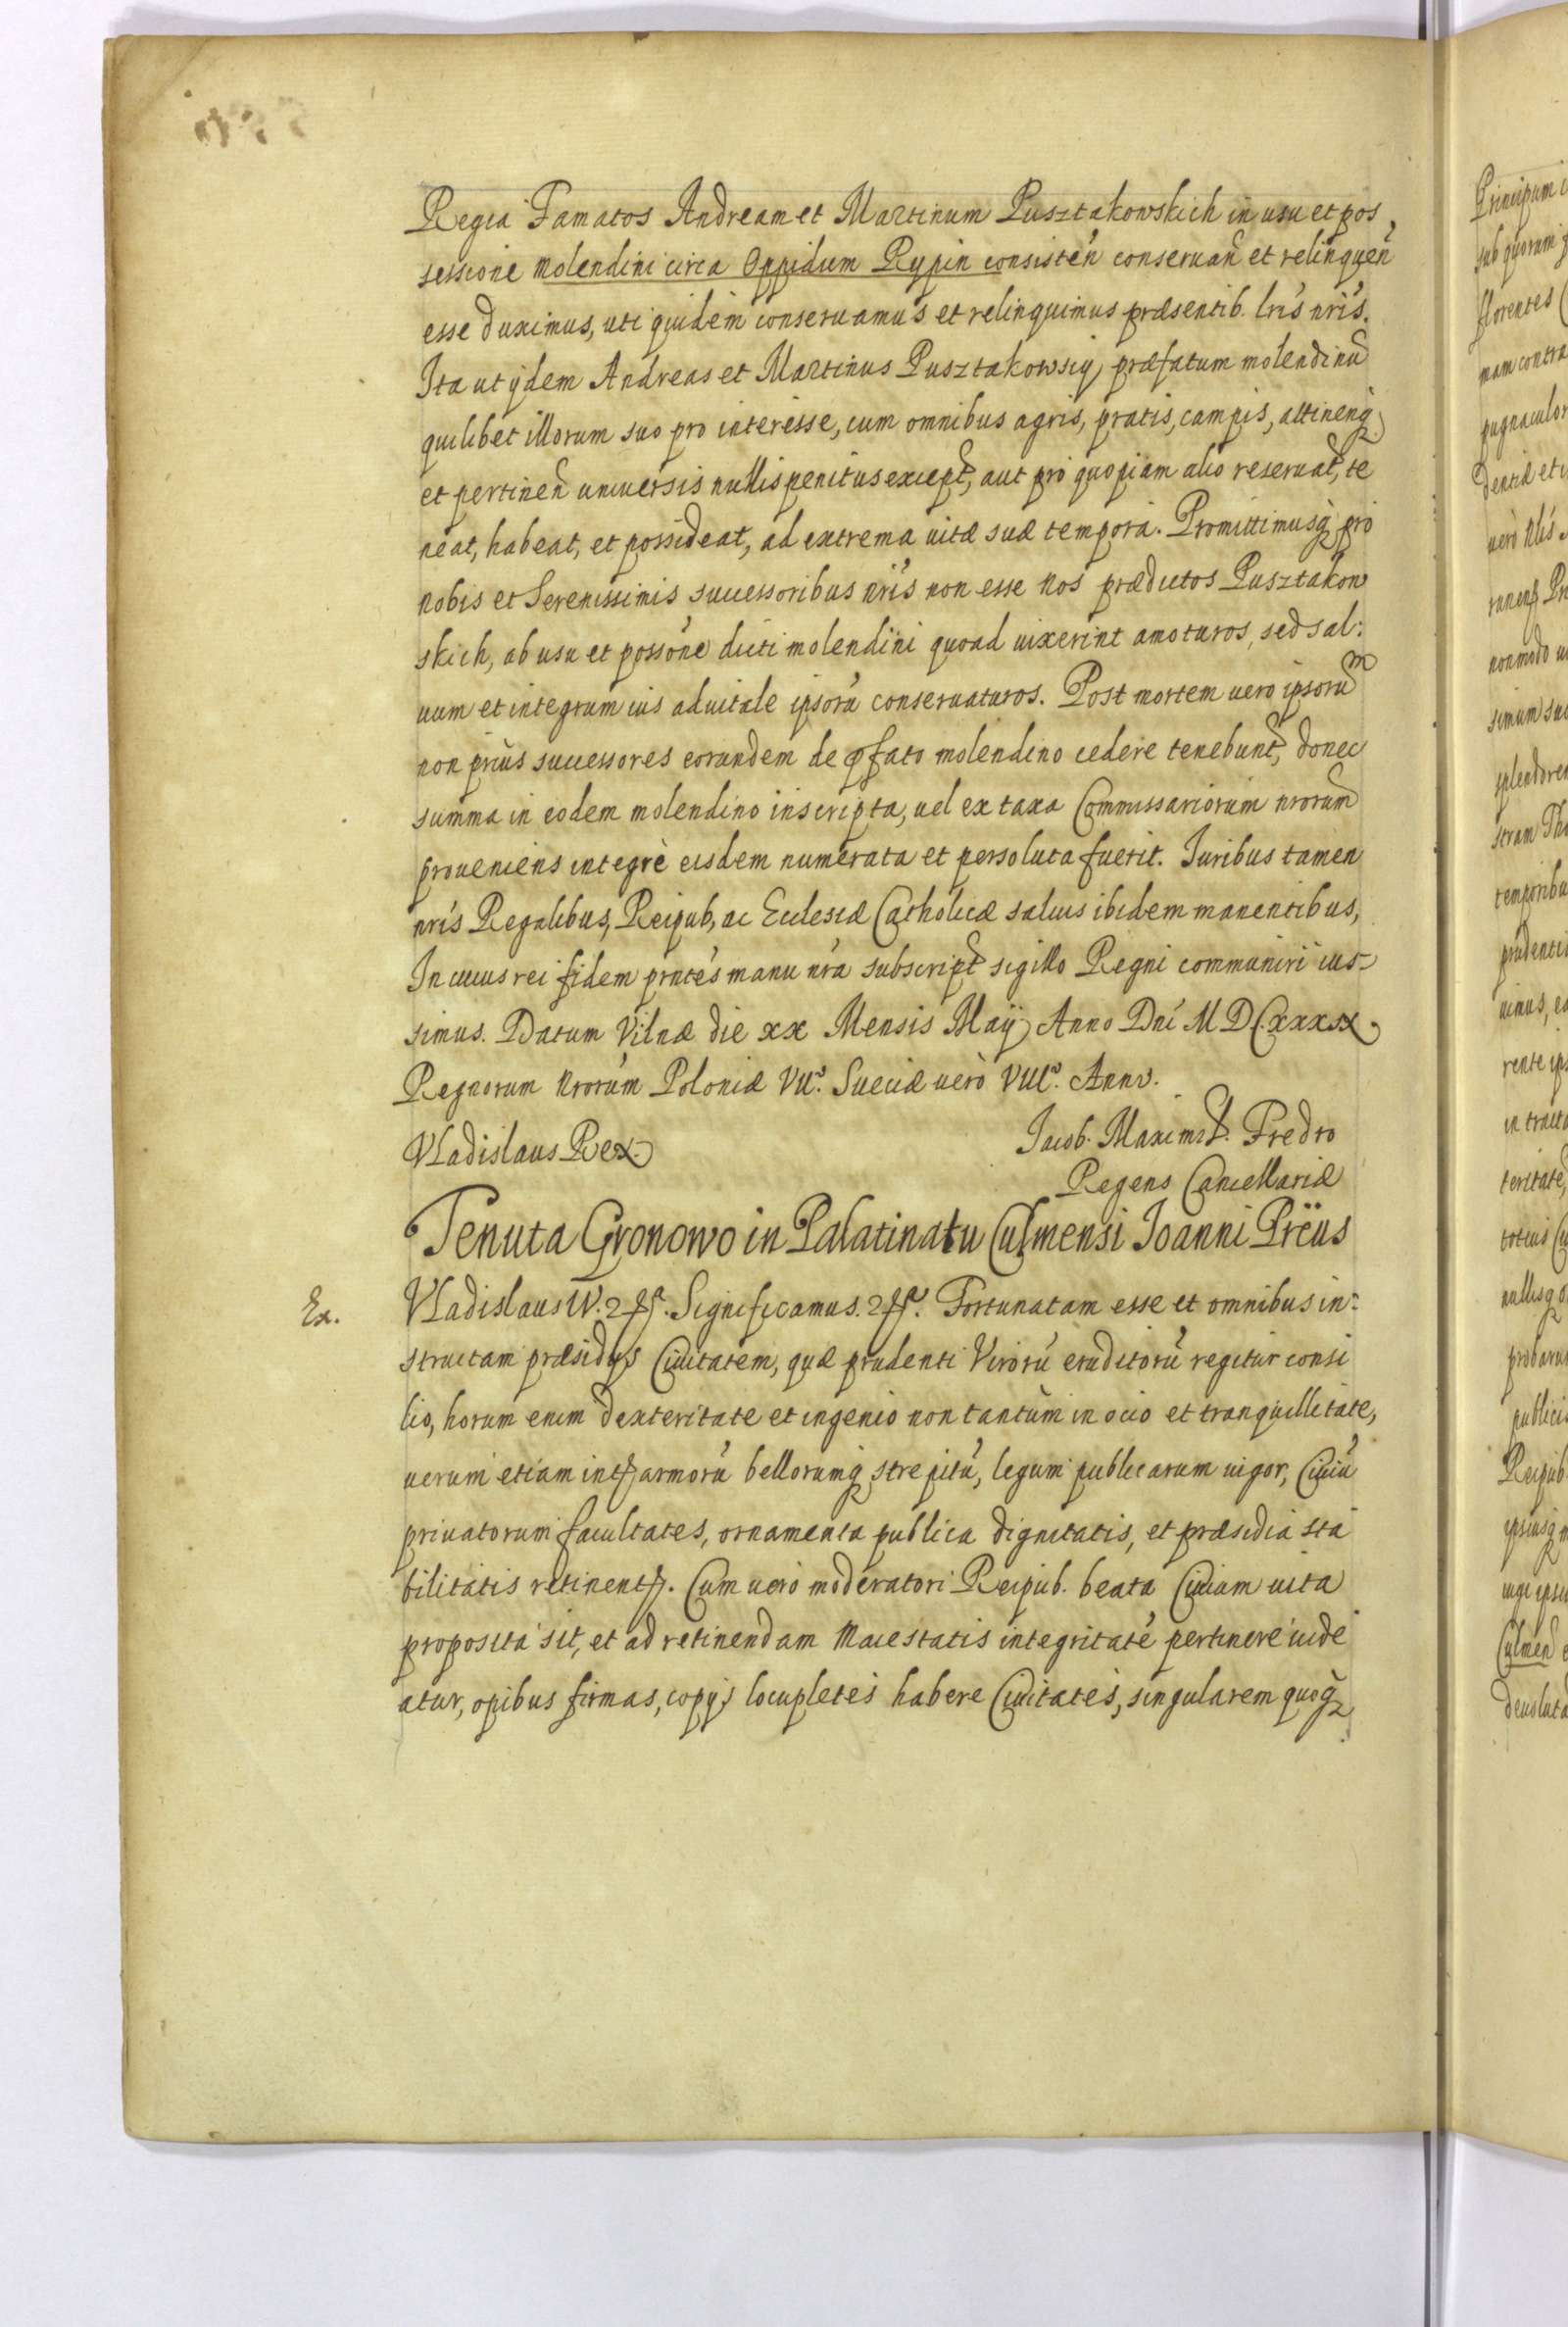 Regia Famatos Andream et Martinum Pusztakowskich in usu et pos
sessione molendini circa Oppidum Rypin consisteñ conseruañ et relinqueñ
esse duximus, uti quidem conseruamus et relinquimus præsentib. lris nris.
Ita ut ydem Andreas et Martinus Pusztakowscy præfatum molendinũ
quilibet illorum suo pro interesse, cum omnibus agris, pratis, campis, attineñq
et pertineñ uniuersis nullis penitus except, aut pro quopiam alio reseruat, te
neat, habeat, et possideat, ad extrema uitæ suæ tempora. Promittimusq pro
nobis et Serenissimis successoribus nris non esse Nos prædictos Pusztakow
skich, ab usu et possone dicti molendini quoad uixerint amoturos, sed sal:
uum et integrum ius aduitale ipsorũ conseruaturos. Post mortem uero ipsorum
non prius successores eorundem de pfato molendino cedere tenebunt, donec
summa in eodem molendino inscripta, uel ex taxa Commissariorum nrorum
proueniens integrè eisdem numerata et persoluta fuerit. Iuribus tamen
nris Regalibus, Reipub, ac Ecclesiæ Catholicæ saluis ibidem manentibus,
In cuius rei fidem pntes manu nra subscript sigillo Regni communiri ius-
simus. Datum Vilnæ die xx Mensis Maij Anno Dni M D C xxxix.
Regnorum Nrorum Poloniæ VIIo. Sueciæ uerò VIIIo. Anno.
Vladislaus Rex.
Jacob. Maximil. Fredro
Regens Cancellariæ
Tenuta Gronowo in Palatinatu Culmensi Ioanni Prëus
Ex.
Vladislaus IV. Significamus. Fortunatam esse et omnibus in:
structam præsidys Ciuitatem, quæ prudenti Virorũ eruditorũ regitur consi
lio, horum enim dexteritate et ingenio non tantùm in ocio et tranquillitate,
uerum etiam int armorũ bellorumq strepitũ, legum publicarum uigor, Ciuiũ
priuatorum facultates, ornamenta publica dignitatis, et præsidia sta
bilitatis retinent. Cum uerò moderatori Reipub. beata Ciuium uita
proposita sit, et ad retinendam Maiestatis integritatẽ pertinere uide
atur, opibus firmas, copys locupletes habere Ciuitates, singularem quoq